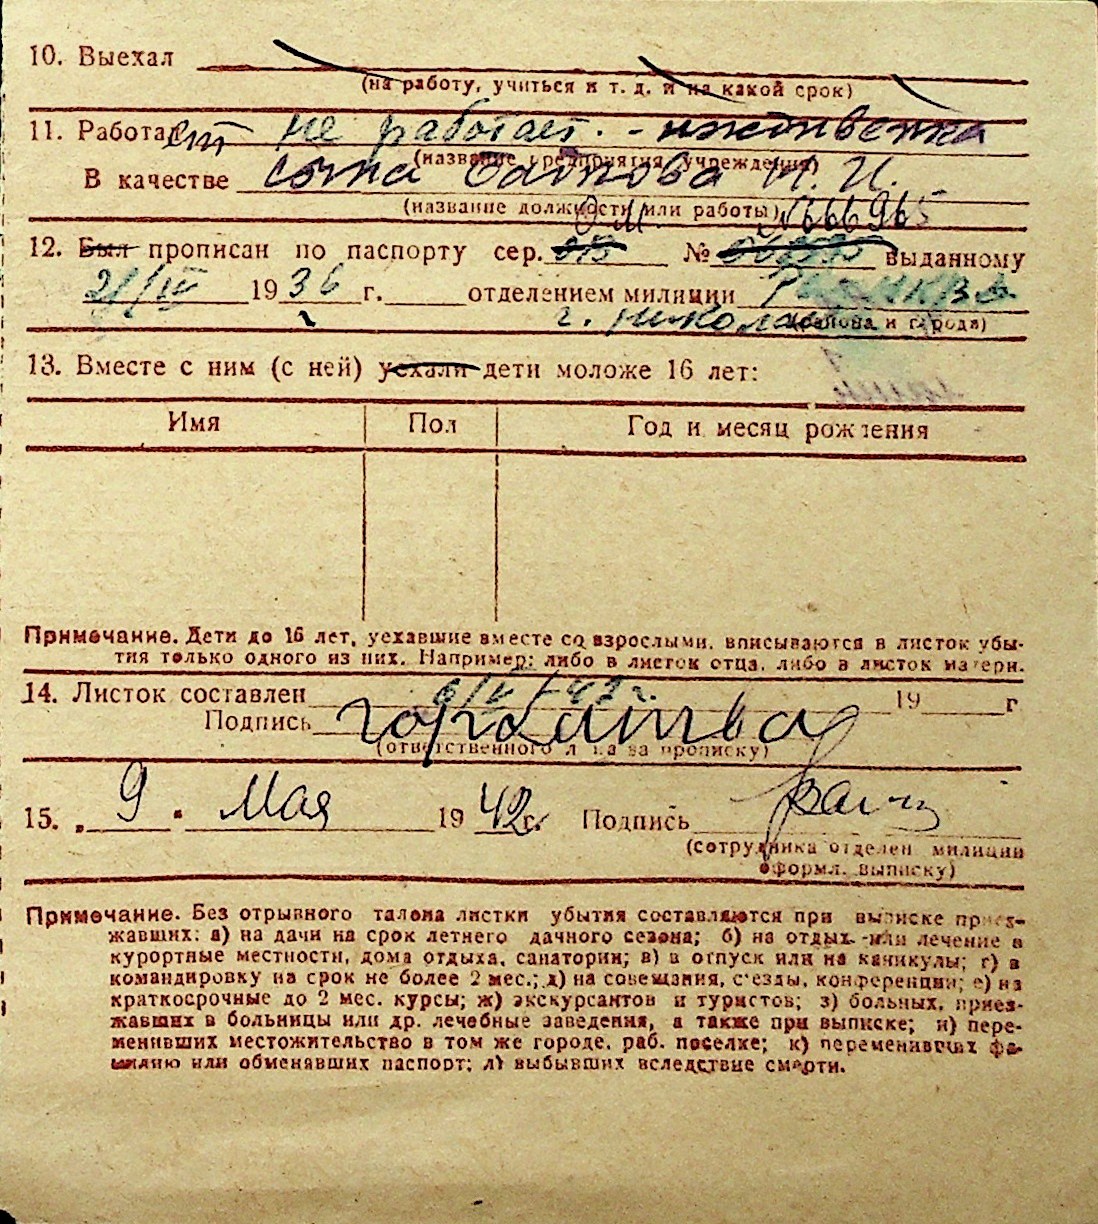 10. Выехал
(на работу, учиться и т. д. и на какой срок)
11. Работает не работает. - иждивенка
(название предприятия, учреждения)
В качестве жена И. И.
(название должности или работы)
О М. № 666965
12. Был прописан по паспорту сер. № выданному
21/IV 1936 г. отделением милиции РО НКВД
г. Николаев
(района и города)
13. Вместе с ним (с ней) уехали дети моложе 16 лет:
Имя Пол Год и месяц рождения
Примечание. Дети до 16 лет, уехавшие вместе со взрослыми, вписываются в листок убы-
тия только одного из них. Например: либо в листок отца, либо в листок матери.
14. Листок составлен 6/V-42 г. 19 г
Подпись
(ответственного лица за прописку)
15. „9" Мая 1942 г. Подпись
(сотрудника отделен милиции
оформл. выписку)
Примечание. Без отрывного талона листки убытия составляются при выписке приез-
жавших: а) на дачи на срок летнего дачного сезона; б) на отдых или лечение в
курортные местности, дома отдыха, санатории; в) в отпуск или на каникулы; г) в
командировку на срок не более 2 мес.; д) на совещания, с'езды, конференции; е) на
краткосрочные до 2 мес. курсы; ж) экскурсантов и туристов; з) больных, приез-
жавших в больницы или др. лечебные заведения, а также при выписке; и) пере-
менивших местожительство в том же городе, раб. поселке; к) переменивших фа-
милию или обменявших паспорт; л) выбывших вследствие смерти.